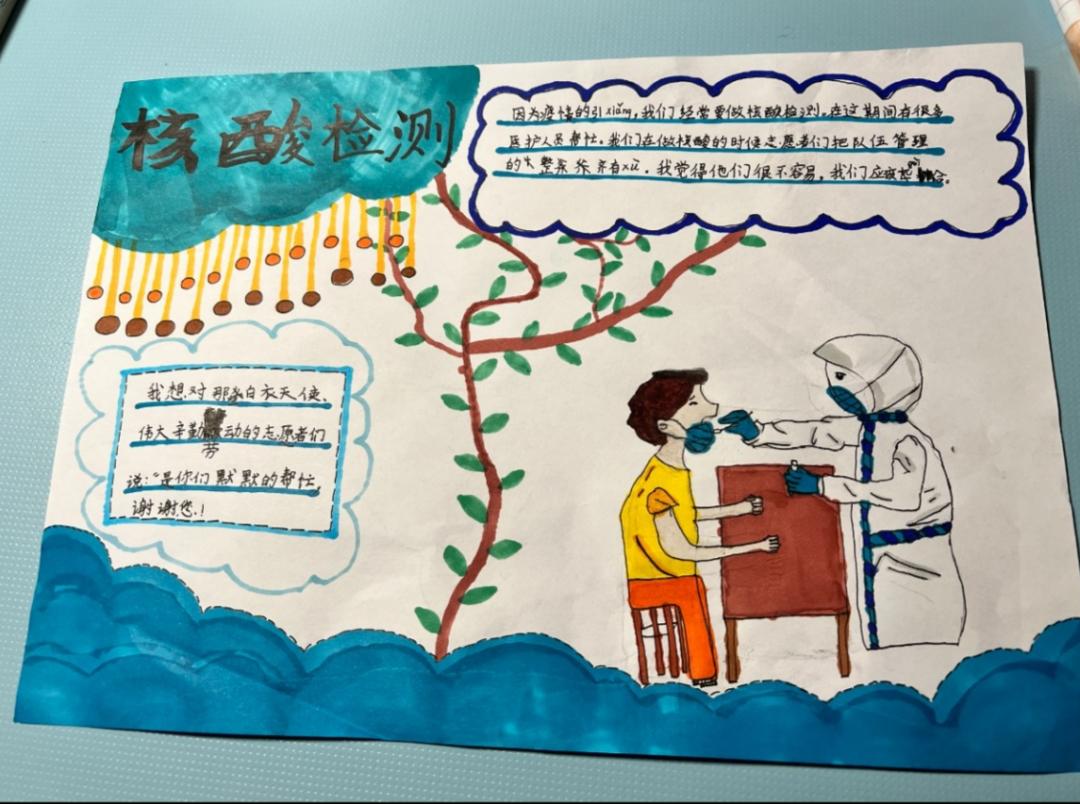 核酸检测
因为疫情的引xiǎng,我们经常要做核酸检测.在这期间有很多
医护人员帮忙。我们在做核酸的时候志愿者们把队伍管理
的 整齐有xù.我觉得他们很不容易,我们应该 合。
我想对那 白衣天使、
伟大辛勤劳动的志愿者们
说:“是你们默默的帮忙,
谢谢您.!